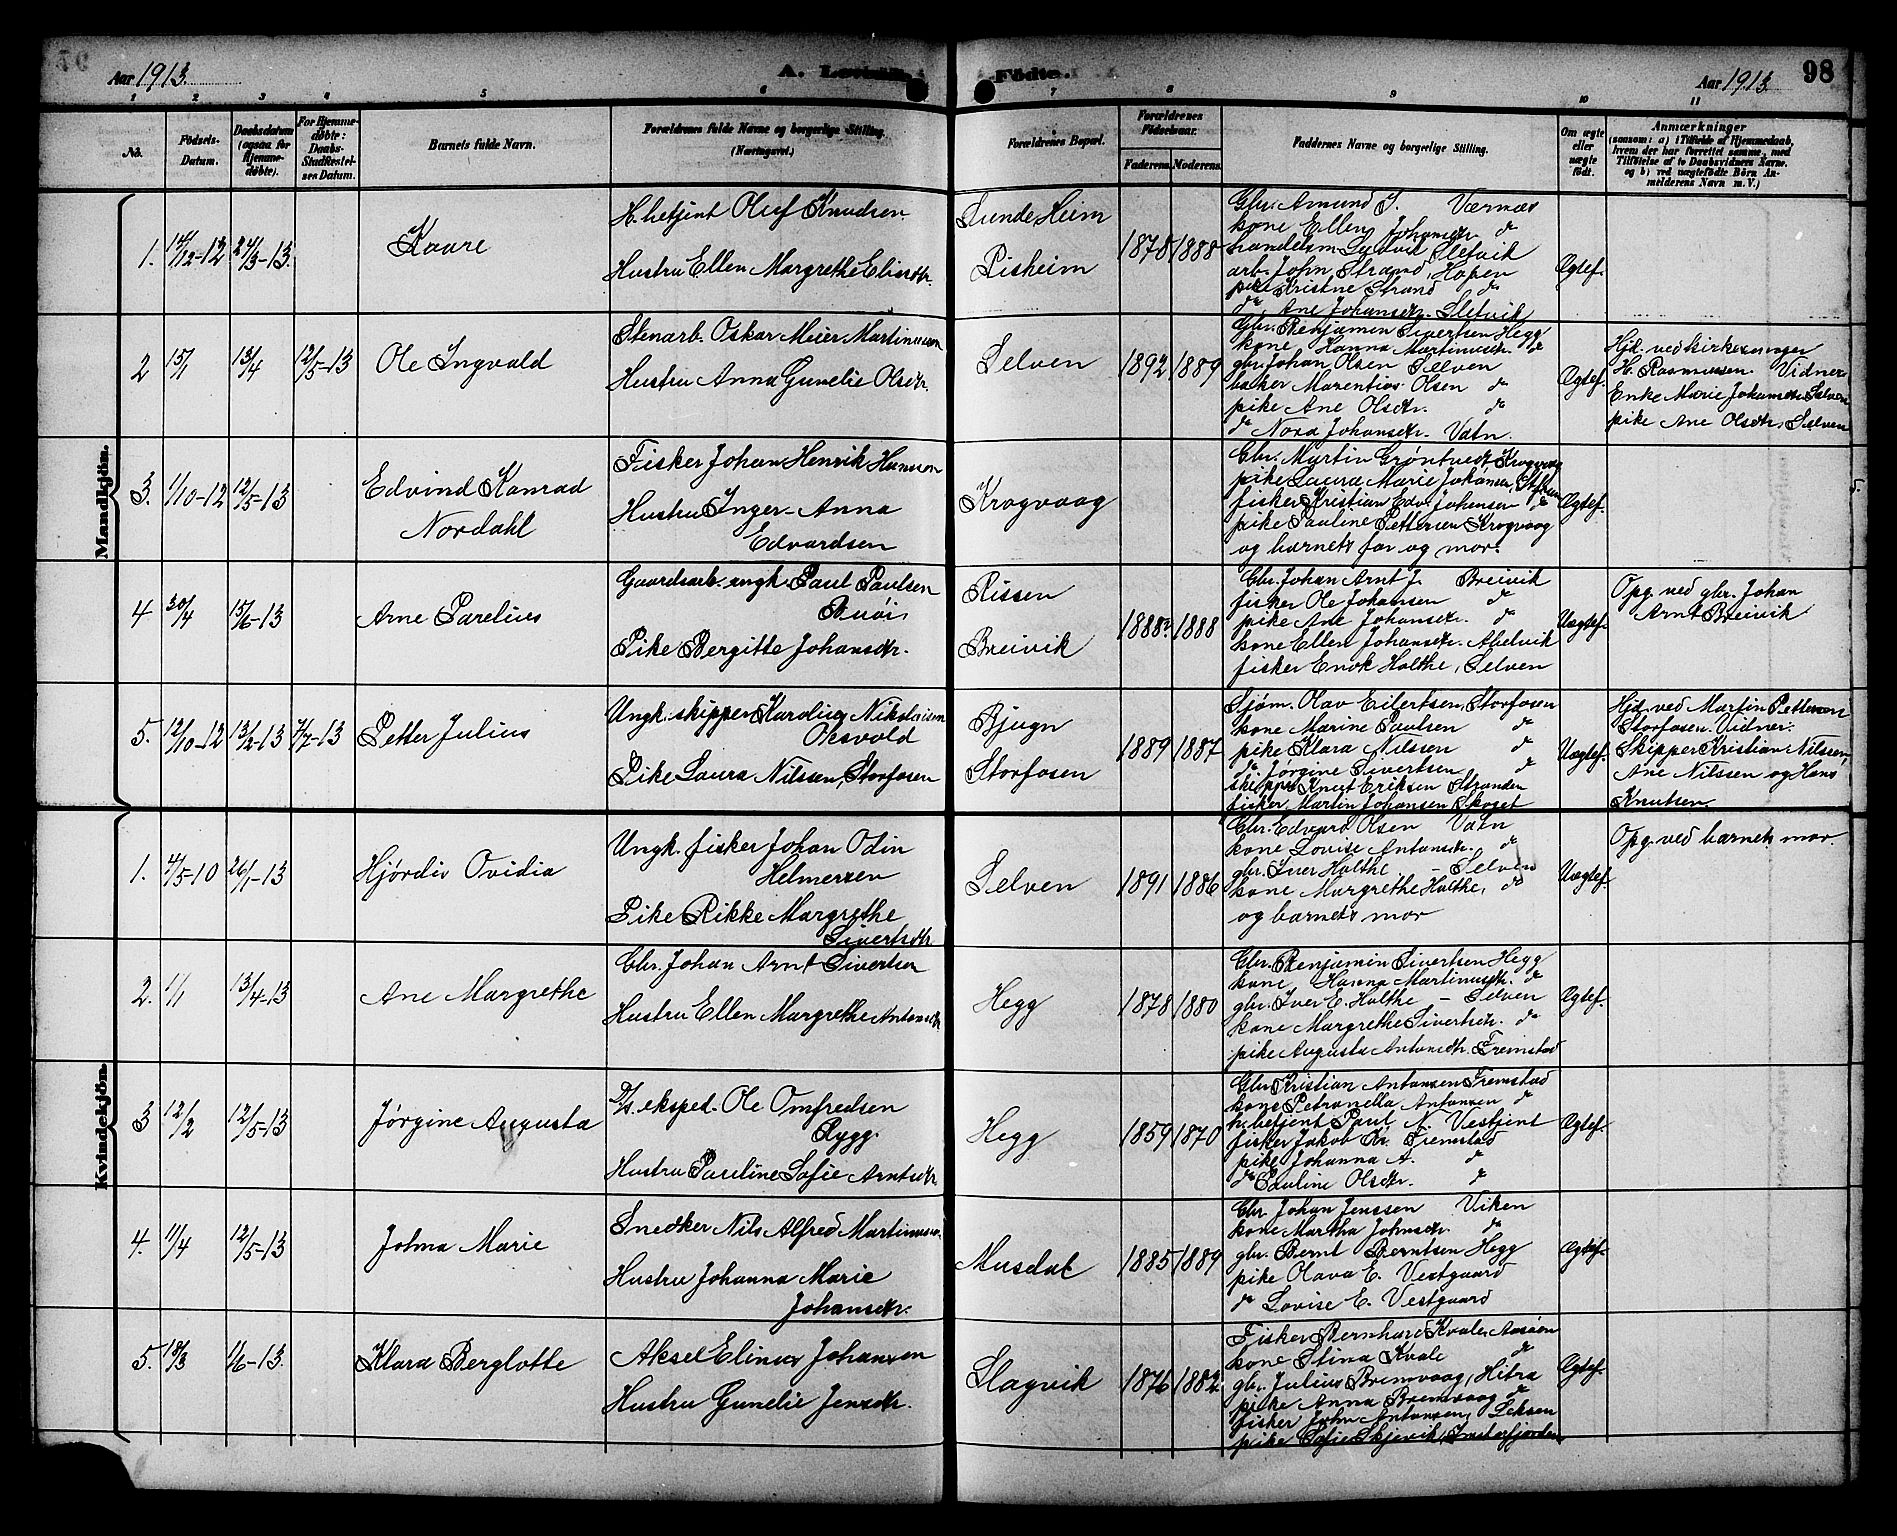 Aar 1913.
A. Levende
Fødte.
Aar 1913.
98
1 2 3 4 5 6 7 8 9 10 11
No.
Fødsels-
Datum.
Daabsdatum
(ogsaa for
Hjemme-
døbte).
For Hjemme-
døbte:
Daabs-
Stadfæstel-
ses Datum.
Barnets fulde Navn.
Forældrenes fulde Navne og borgerlige Stilling.
(Næringsvei.)
Forældrenes Bopæl.
Forældrenes
Fødselsaar.
Faderens. Moderens.
Faddernes Navne og borgerlige Stilling.
Om ægte
eller
uægte
født.
Anmærkninger
(saasom: a) i Tilfælde af Hjemmedaab,
hvem der har forrettet samme, med
Tilføielse af to Daabsvidners Navne.
og b) ved uægtefødte Børn An-
melderens Navn m. V.)
Mandkjön.
1. 14/12-12 24/3-13. Kaare
H. betjent Oluf Knudsen
Hustru Ellen Margrethe Eliasdtr.
Sunde Heim
Pisheim
1878 1888
Gbr. Amund J. Værnæs
kone Ellen Johansdtr. do
handelsm. Ludvik Sletvik
arb. John Strand, Hopen
pike Kristine Strand do
do Ane Johansdtr. Sletvik
Ægtef.
2 15/1 13/4 12/5-13 Ole Ingvald
Stenarb. Oskar Meier Martinusen
Hustru Anna Gunelie Olsdtr.
Selven
1892 1889
Gbr. Benjamin Sivertsen Hegg
kone Hanna Martinusdtr. do
gbr. Johan Olsen Selven
baker Marentius Olsen do
pike Ane Olsdtr. do
do Nora Johansdtr. Vatn.
Ægtef.
Hjd. ved kirkesanger
H. Rasmussen. Vidner
Enke Marie Johansdtr. Selven
pike Ane Olsdtr, Selven
3. 1/10-12 12/5-13 Edvind Konrad
Nordahl
Fisker Johan Henrik Hansen
Hustru Inger Anna
Edvardsen
Krogvaag
Gbr. Martin Grøntvedt Krogvaag
pike Laura Marie Johansen,
fisker Kristian Edv. Johansen do
pike Pauline Pettersen Krogvaag
og barnets far og mor.
Ægtef.
4 30/4 15/6-13 Arne Parelius
Gaardsarb. ungk. Paul Paulsen
Buøi
Pike Bergitte Johansdtr.
Rissen
Breivik
1888? 1888
Gbr. Johan Arnt J. Breivik
fisker Ole Johansen do
pike Ane Johansdtr. do
kone Ellen Johansdtr. Abelvik
fisker Enok Holthe, Selven
Uægtef.
Opg. ved gbr. Johan
Arnt Breivik
5. 12/10-12 13/2-13 7/7-13 Petter Julius
Ungk. skipper Karolius Nikolaisen
Oksvold
Pike Laura Nilssen, Storfosen
Bjugn
Storfosen
1889 1887
Sjøm. Olav Eilertsen, Storfosen
kone Marine Paulsen do
pike Klara Nilssen do
do Jørgine Sivertsen do
skipper Knut Eriksen Stranden
fisker Martin Johansen Skoset
Uægtef.
Hjd. ved Martin Pettersen
Storfosen. Vidner:
Skipper Kristian Nilssen,
Ane Nilssen og Hans
Knutsen
Kvindekjön.
1. 4/5-10 26/1-13 Hjørdis Ovidia
Ungk. fisker Johan Odin
Helmersen
Pike Rikke Margrethe
Sivertsdtr.
Selven
1891 1886
Gbr. Edvard Olsen Vatn
kone Lovise Antonsdtr. do
gbr. Iver Holthe - Selven
kone Margrethe Holthe, do
og barnets mor
Uægtef.
Opg. ved barnets mor.
2. 1/1 13/4-13 Ane Margrethe
Gbr. Johan Arnt Sivertsen
Hustru Ellen Margrethe Antonsdtr
Hegg
1878 1880
Gbr. Benjamin Sivertsen Hegg
kone Hanna Martinusdtr. do
gbr. Iver E. Holthe - Selven
kone Margrethe Sivertsdtr. do
pike Augusta Antonsdtr. Fremstad
Ægtef.
3 12/2 12/5-13 Jørgine Augusta
D/s. eksped. Ole Omfredsen
Rygg.
Hustru Pareline Sofie Arntsdtr.
Hegg
1859 1870
Gbr. Kristian Antonsen Fremstad
kone Petronella Antonsen do
h. betjent Paul N. Vestjent
fisker Jakob Kr. Fremstad
pike Johanna A. do
do Pauline Olsdtr. do
Ægtef.
4. 11/4 12/5-13 Johna Marie
Snedker Nils Alfred Martinusen
Hustru Johanna Marie
Johansdtr.
Musdal
1885 1889
Gbr Johan Jenssen Viken
kone Martha Johnsdtr. do
gbr. Bernt Berntsen Hegg
pike Olava E. Vestgaard
do Lovise E. Vestgaard
Ægtef.
5. 18/3 1/6-13. Klara Berglotte
Aksel Elinus Johansen
Hustru Gunelie Jensdtr.
Slagvik
1876 1882
Fisker Bernhard Kvale, Aasøen
kone Stina Kvale do
gbr. Julius Bremvaag, Hitra
pike Anna Bremvaag do
fisker John Antonsen, Leksen
pike Sofie Skjevik, Imsterfjorden
Ægtef.